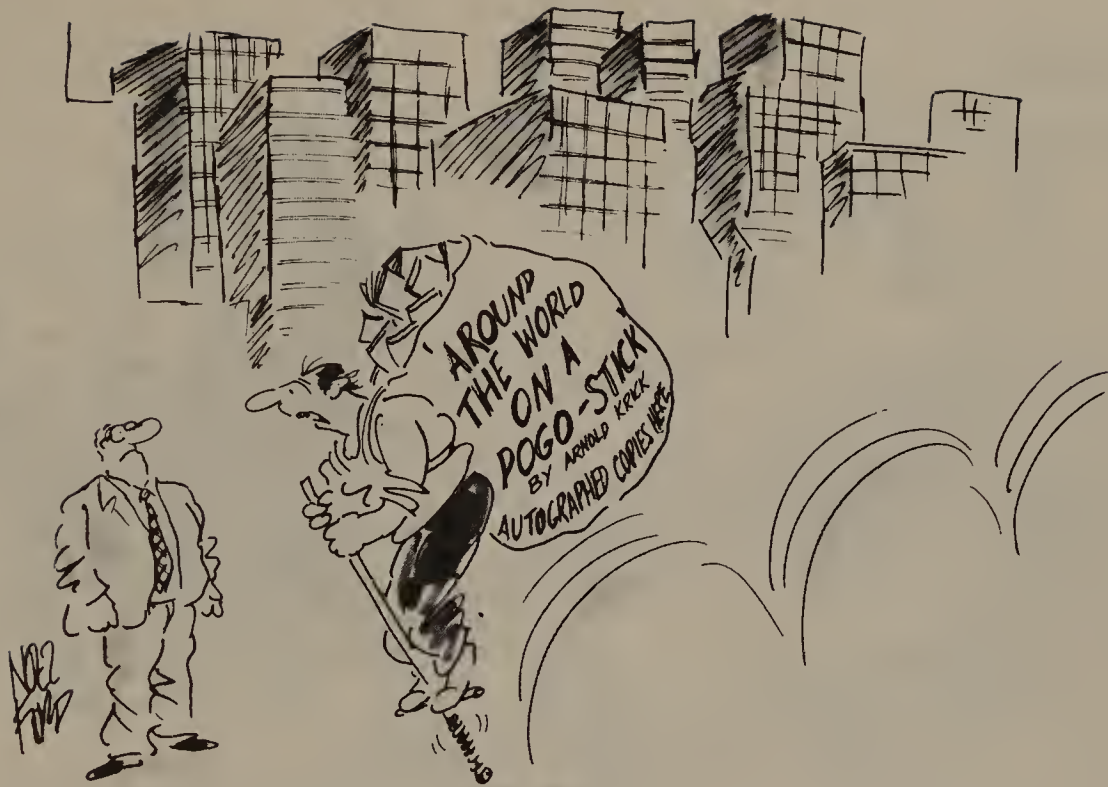 'AROUND
THE WORLD
ON A
POGO-STICK'
BY ARNOLD KRICK
AUTOGRAPHED COPIES HERE
NOEL
FORD